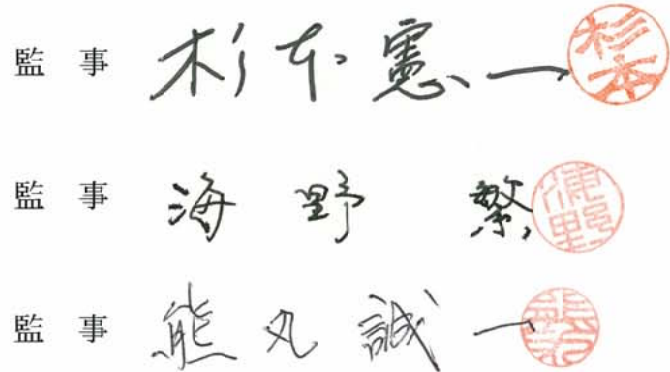 監事 杉本憲一 杉本
監事 海野 繁 海野
監事 熊丸誠一